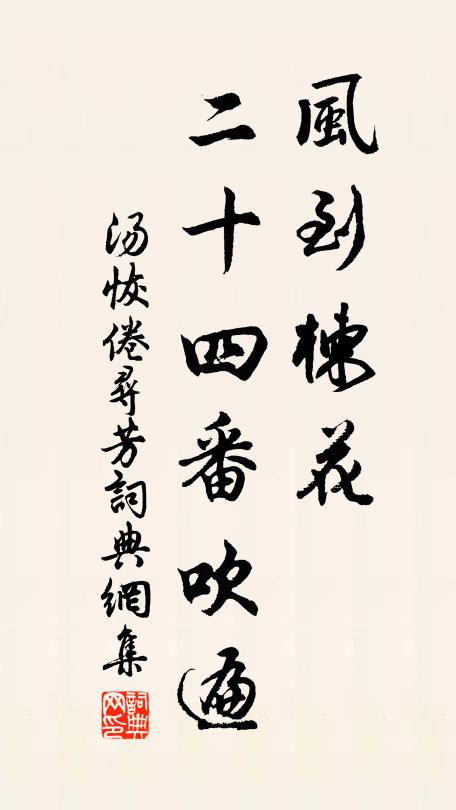 風到楝花
二十四番吹遍
汤恢倦尋芳詞典網集
詞典网印